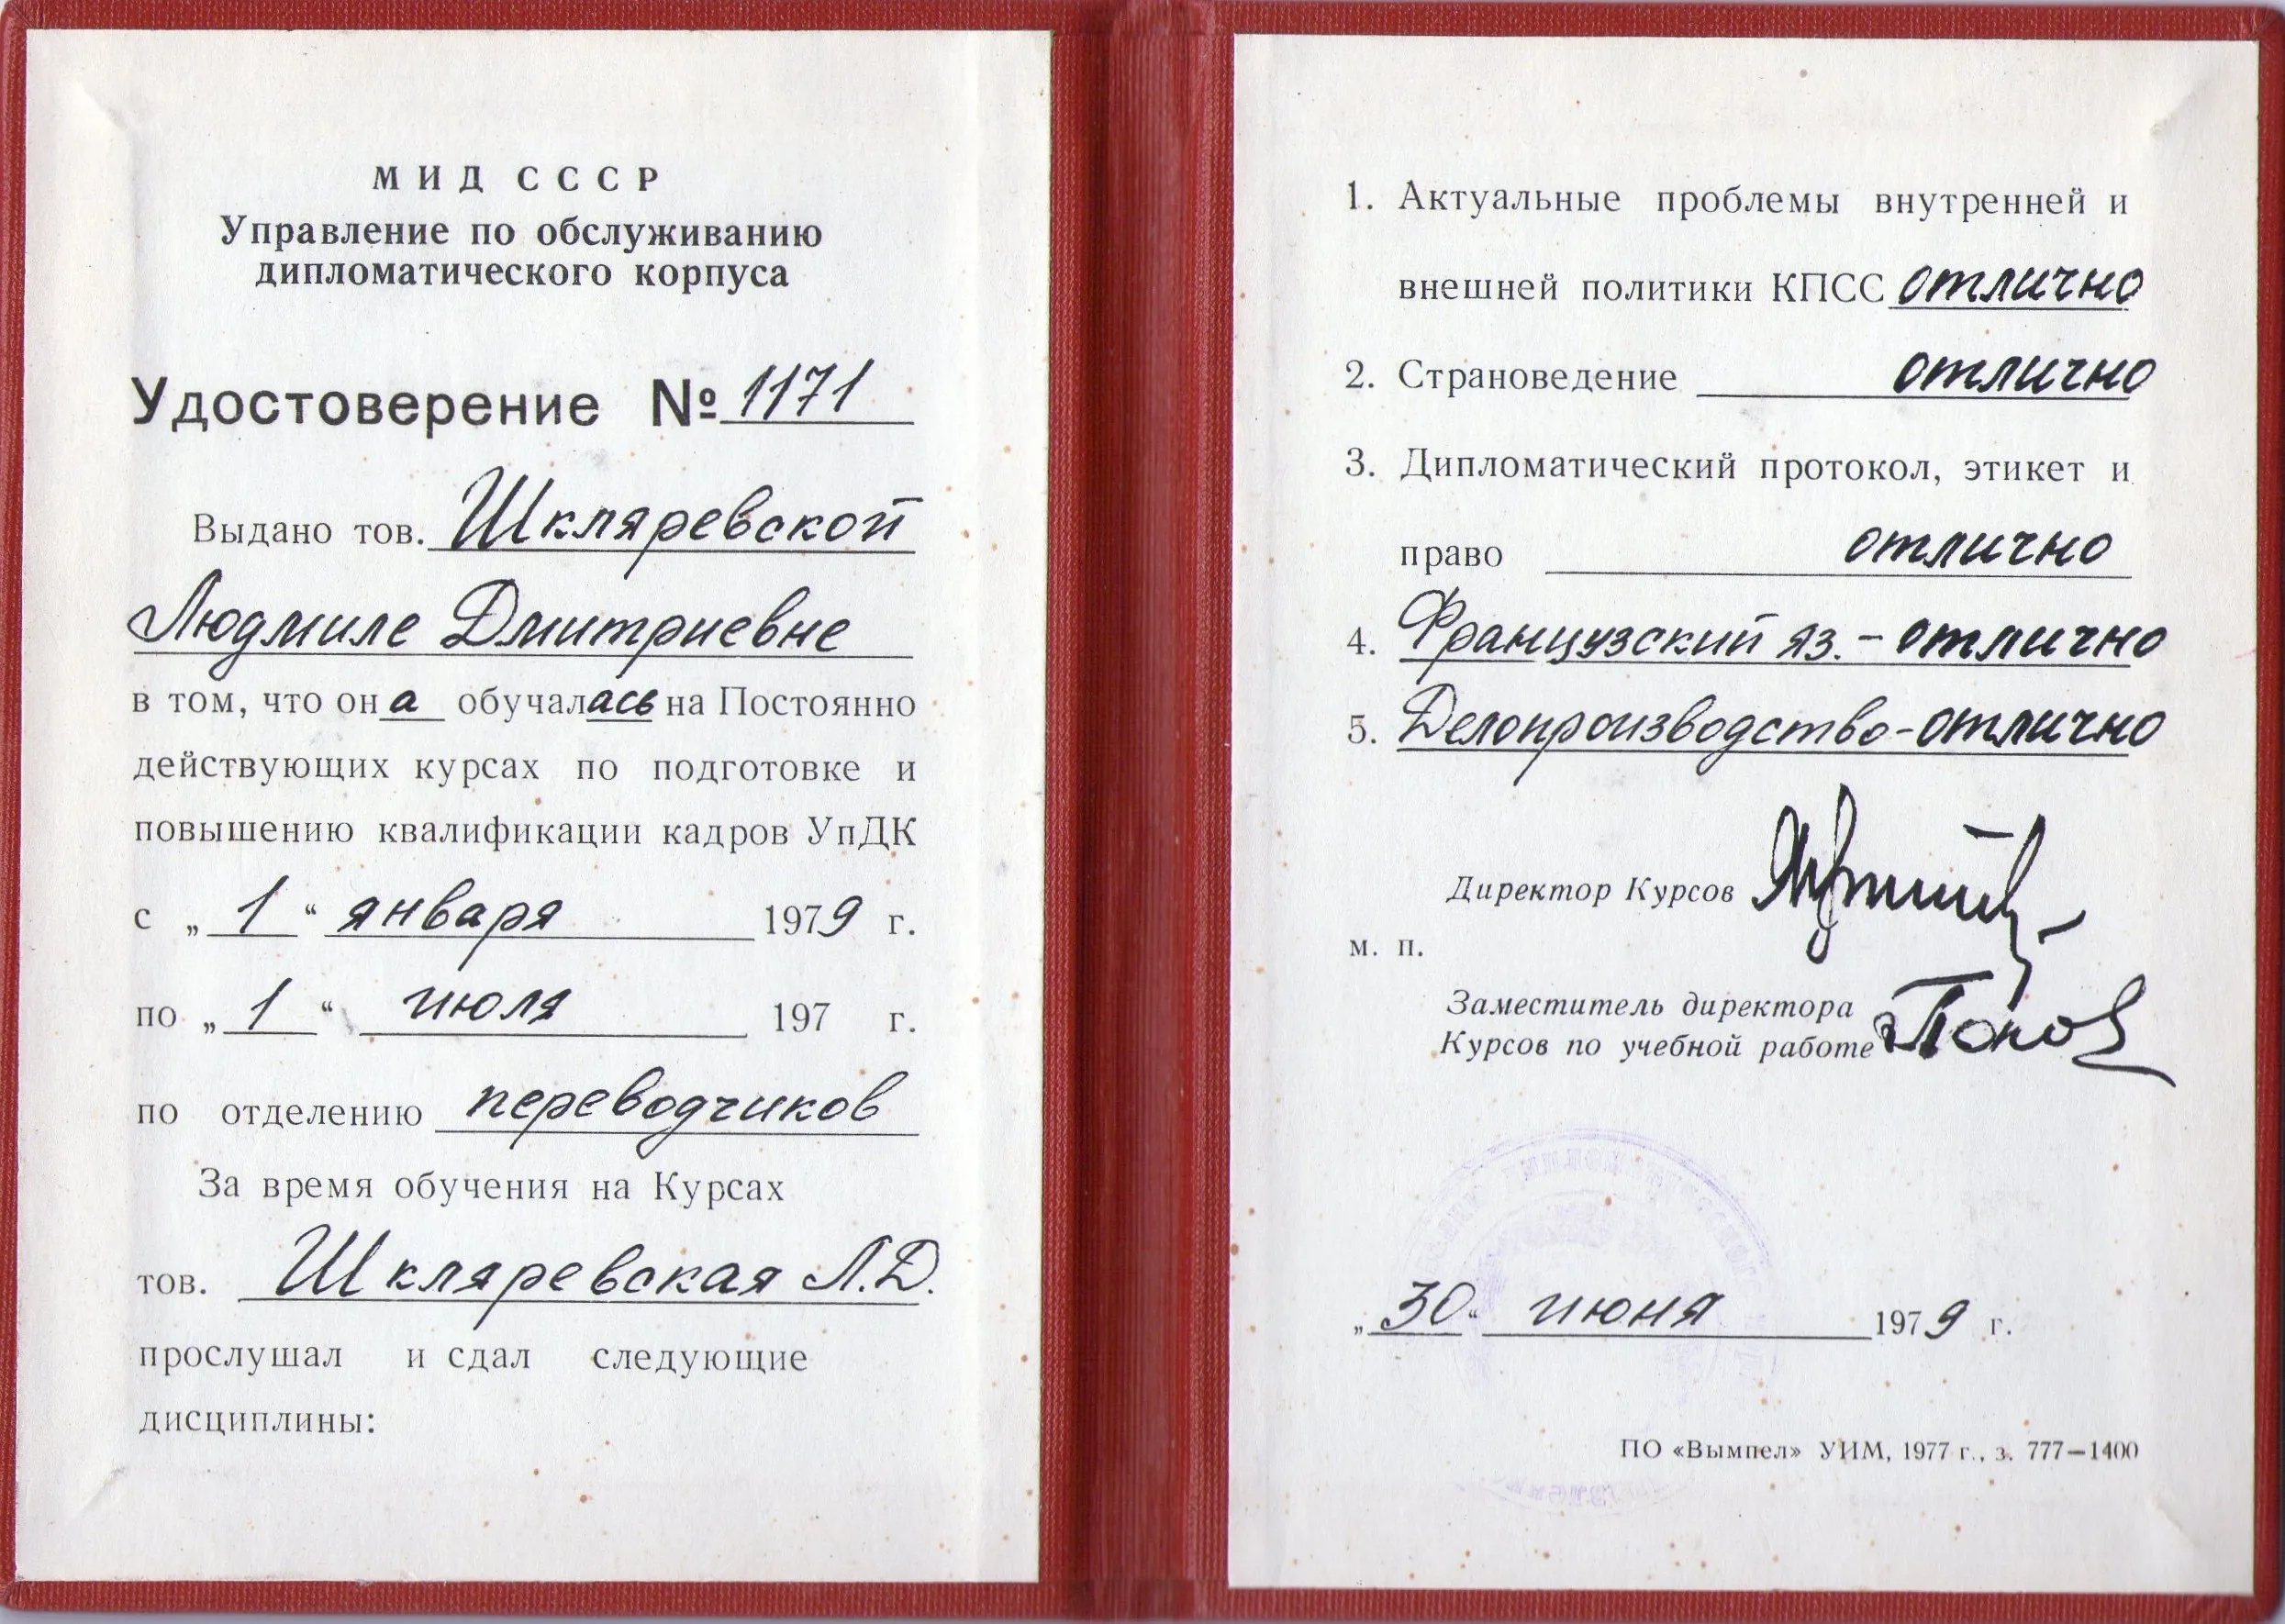 МИД СССР
Управление по обслуживанию
дипломатического корпуса
Удостоверение № 1171
Выдано тов. Шкляревской
Людмиле Дмитриевне
в том, что она обучалась на Постоянно
действующих курсах по подготовке и
повышению квалификации кадров УпДК
с „1“ января 1979 г.
по „1“ июля 197 г.
по отделению переводчиков
За время обучения на Курсах
тов. Шкляревская Л.Д.
прослушал и сдал следующие
дисциплины:
1. Актуальные проблемы внутренней и
внешней политики КПСС отлично
2. Страноведение отлично
3. Дипломатический протокол, этикет и
право отлично
4. Французский яз. - отлично
5. Делопроизводство - отлично
Директор Курсов
м. п.
Заместитель директора
Курсов по учебной работе
„30“ июня 1979 г.
ПО «Вымпел» УИМ, 1977 г., з. 777—1400